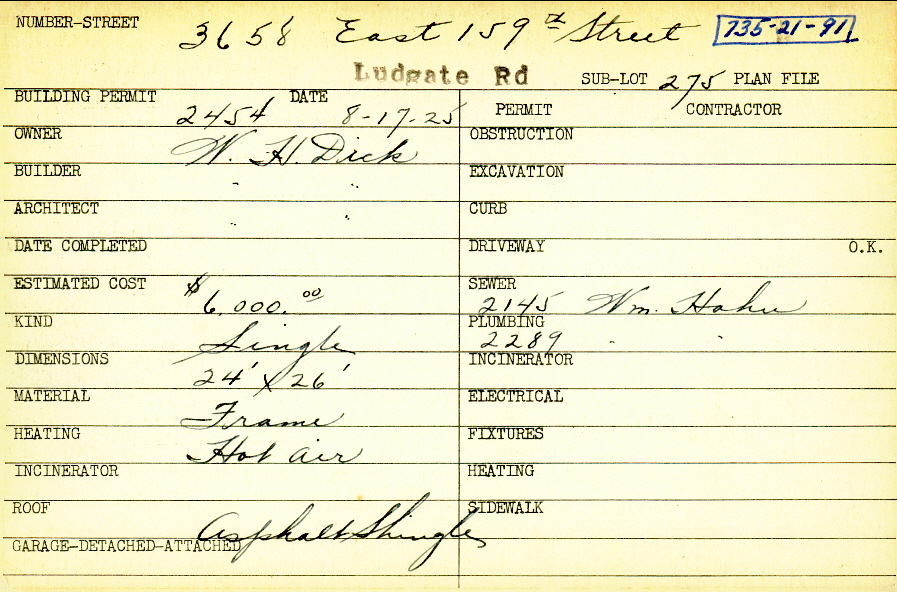 NUMBER-STREET 3658 East 159th Street 735-21-91
Ludgate Rd SUB-LOT 275 PLAN FILE
BUILDING PERMIT 2454 DATE 8-17-25 PERMIT CONTRACTOR
OWNER W. H. Dick OBSTRUCTION
BUILDER " " EXCAVATION
ARCHITECT " " CURB
DATE COMPLETED DRIVEWAY O.K.
ESTIMATED COST $6,000.00 SEWER 2145 Wm. Hahn
KIND Single PLUMBING 2289 " "
DIMENSIONS 24' x 26' INCINERATOR
MATERIAL Frame ELECTRICAL
HEATING Hot Air FIXTURES
INCINERATOR HEATING
ROOF Asphalt Shingles SIDEWALK
GARAGE-DETACHED-ATTACHED